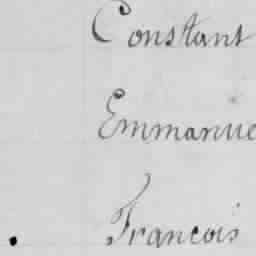 Constant
Emmanue
. Francois